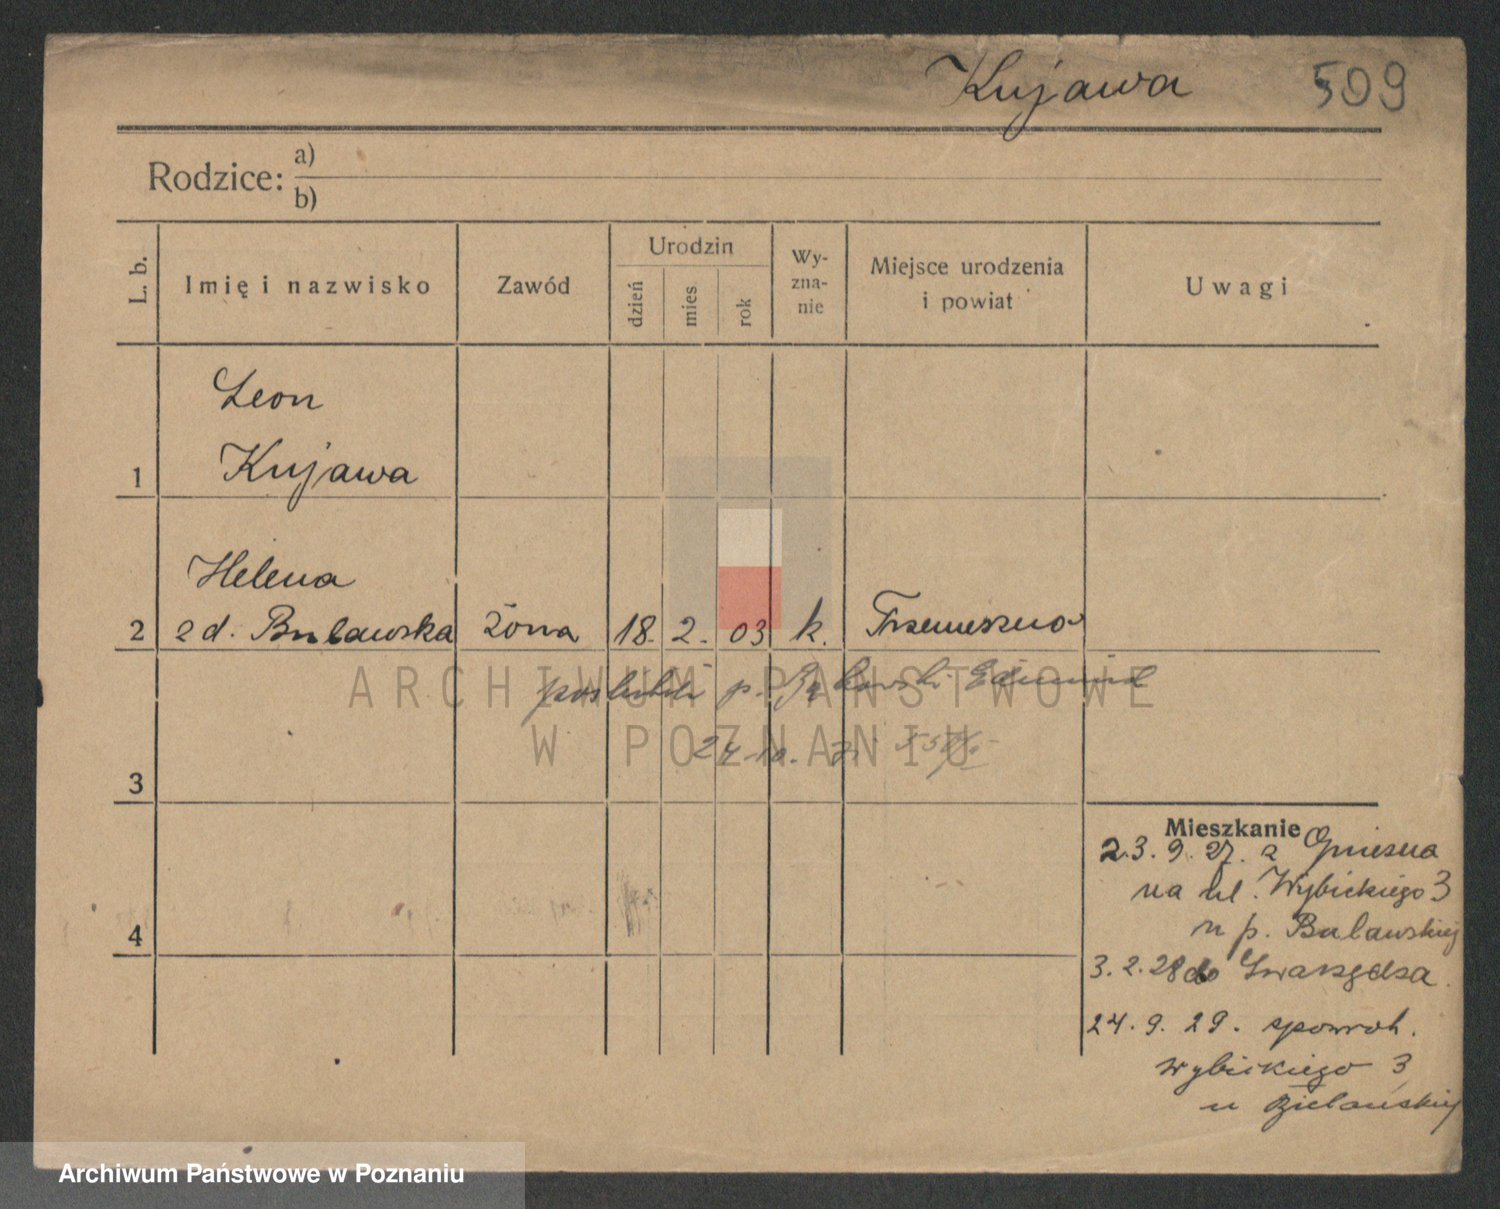 Kujawa 509
Rodzice: a)
b)
L. b.
Imię i nazwisko
Zawód
Urodzin
dzień
mies
rok
Wy-
zna-
nie
Miejsce urodzenia
i powiat
Uwagi
Leon
1 Kujawa
Helena
2 z d. Bulawska żona 18. 2. 03 k. Trzemeszno
p. Edmund
ARCHIWUM PAŃSTWOWE
W POZNANIU
24. 10.
3
Mieszkanie
23. 9. 27. z Gniezna
na ul. Wybickiego 3
u p. Bulawskiej
4
3. 2. 28 do Swarzędza.
24. 9. 29. spowrot.
Wybickiego 3
u
Archiwum Państwowe w Poznaniu